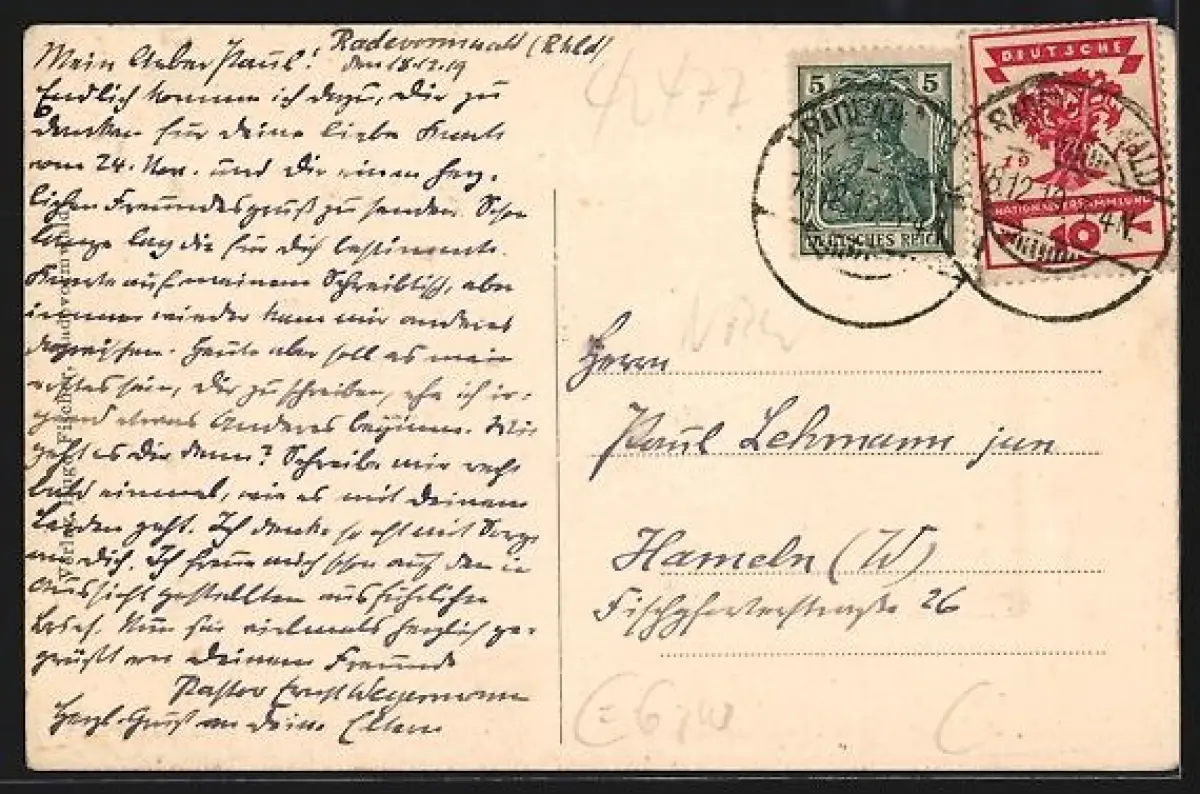 Radevormwald (Rhld)
den 18.12.19
Mein lieber Paul!
Endlich komme ich dazu, Dir zu
danken für Deine liebe Karte
vom 24. Nov. und Dir einen herz-
lichen Freundesgruß zu senden. Schon
lange lag die für Dich bestimmte
Karte auf meinem Schreibtisch, aber
immer wieder kam mir anderes
dazwischen. Heute aber soll es mein
erstes sein, Dir zu schreiben, ehe ich ir-
gend etwas Anderes beginne. Wie
geht es Dir denn? Schreibe mir recht
bald einmal, wie es mit Deinem
Leiden geht. Ich denke so oft mit Sorge
an Dich. Ich freue mich schon auf den in
Aussicht gestellten ausführlichen
Brief. Nun sei vielmals herzlich ge-
grüßt von Deinem Freunde
Pastor Ernst Wegermann
Herzl. Gruß an Deine Eltern
Verlag Hugo Fischer, Radevormwald
5 5
DEUTSCHES REICH
DEUTSCHE
19
NATIONALVERSAMMLUNG
10
Herrn
Paul Lehmann jun
Hameln (W)
Fischpfortenstraße 26